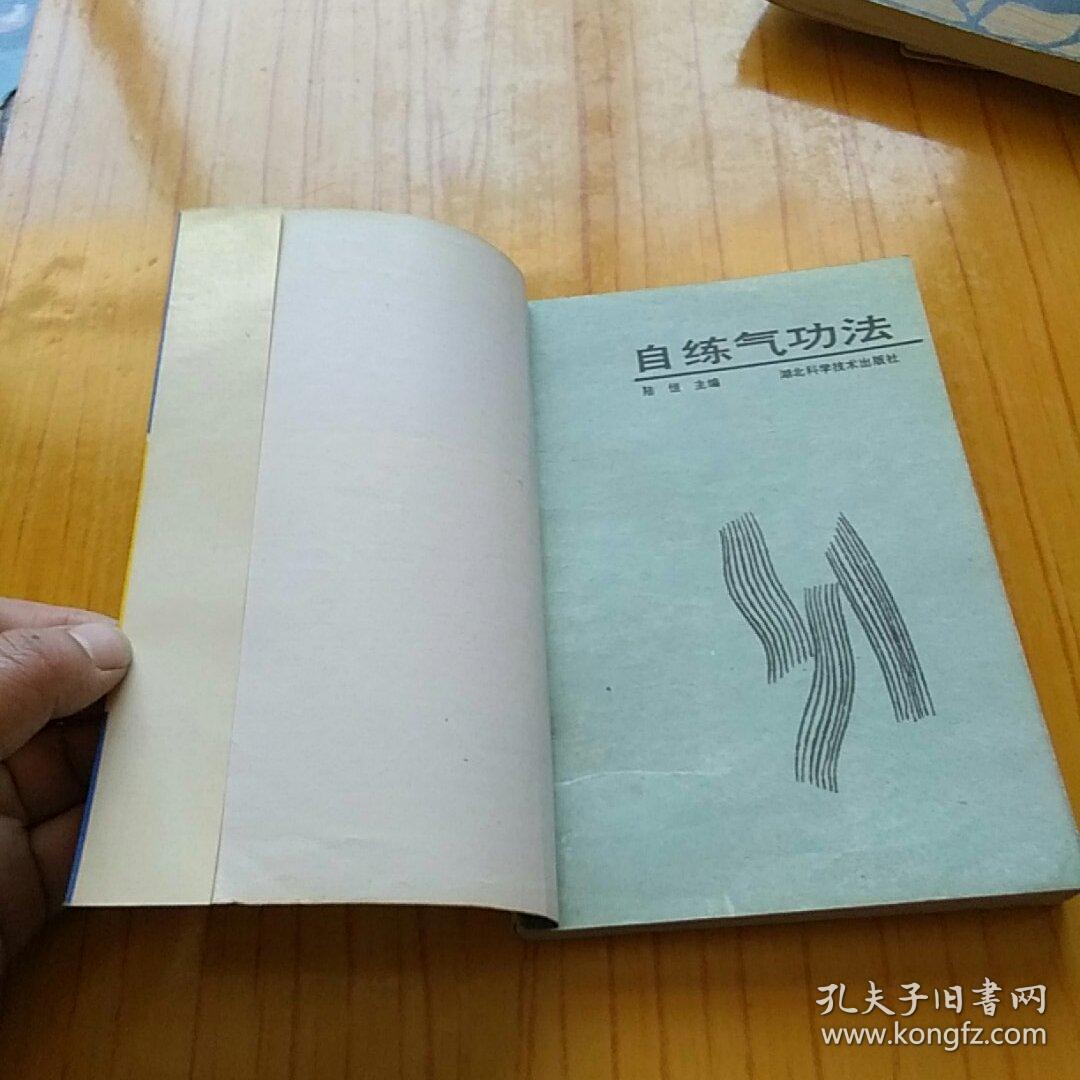 自练气功法
陆恒 主编 湖北科学技术出版社
孔夫子旧書网
www.kongfz.com